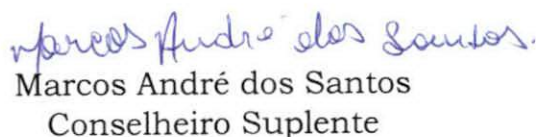 Marcos André dos Santos.
Marcos André dos Santos
Conselheiro Suplente